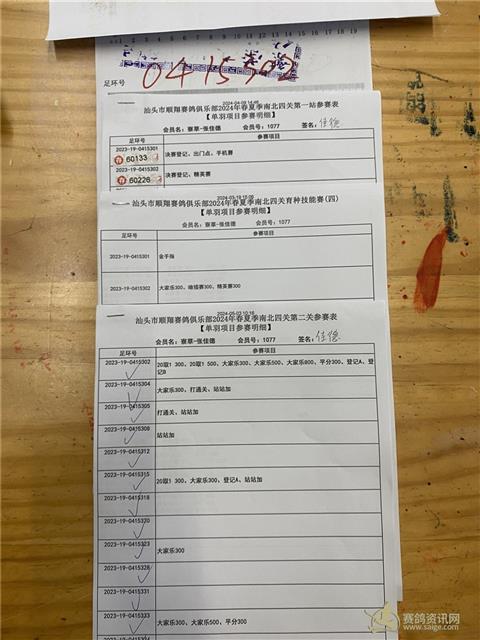 足环号 0415302
2024-04-09 14:46
汕头市顺翔赛鸽俱乐部2024年春夏季南北四关第一站参赛表
【单羽项目参赛明细】
会员名：寮草-张佳德 会员号：1077 签名：佳德
足环号 参赛项目
2023-19-0415301
60133 决赛登记、出门点、手机赛
2023-19-0415302
60226 决赛登记、精英赛
汕头市顺翔赛鸽俱乐部2024年春夏季南北四关育种技能赛(四)
【单羽项目参赛明细】
会员名：寮草-张佳德 会员号：1077
足环号 参赛项目
2023-19-0415301 金手指
2023-19-0415302 大家乐300、雌雄赛300、精英赛300
2024-05-03 10:16
汕头市顺翔赛鸽俱乐部2024年春夏季南北四关第二关参赛表
【单羽项目参赛明细】
会员名：寮草-张佳德 会员号：1077 签名：佳德
足环号 参赛项目
2023-19-0415302 20取1 300、20取1 500、大家乐300、大家乐500、大家乐800、平分300、登记A、登
记B
2023-19-0415304 大家乐300、打通关、站站加
2023-19-0415305 打通关、站站加
2023-19-0415308 站站加
2023-19-0415312
2023-19-0415315 20取1 300、大家乐300、登记A、站站加
2023-19-0415318
2023-19-0415320
2023-19-0415323 大家乐300
2023-19-0415328
2023-19-0415331
2023-19-0415333 大家乐300、大家乐500、平分300
赛鸽资讯网
www.saige.com